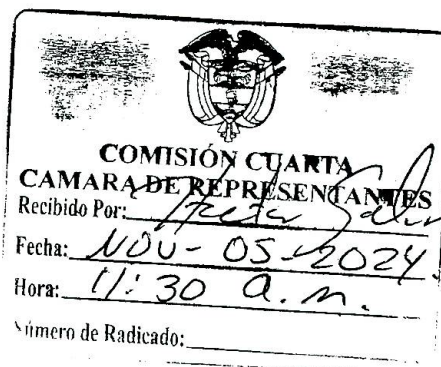 COMISIÓN CUARTA
CAMARA DE REPRESENTANTES
Recibido Por:
Fecha: NOV- 05-2024.
Hora: 11:30 a.m.
Número de Radicado: